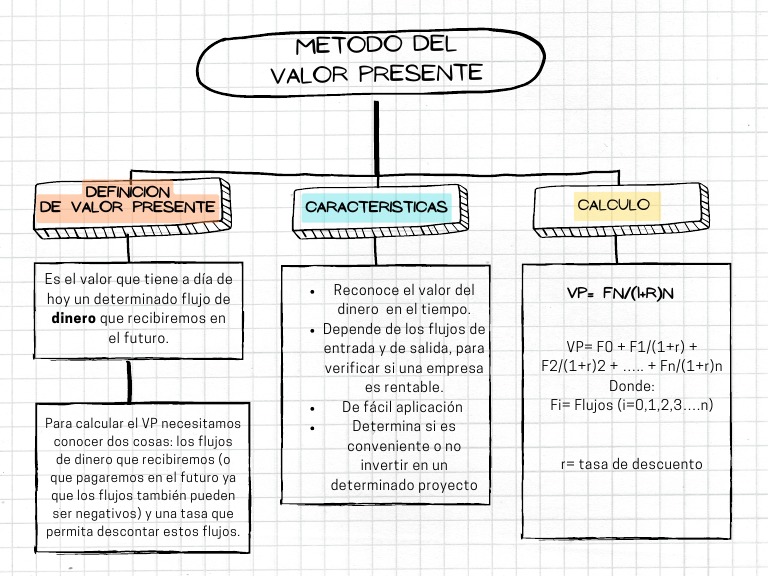 METODO DEL
VALOR PRESENTE
DEFINICION
DE VALOR PRESENTE
Es el valor que tiene a día de
hoy un determinado flujo de
dinero que recibiremos en
el futuro.
Para calcular el VP necesitamos
conocer dos cosas: los flujos
de dinero que recibiremos (o
que pagaremos en el futuro ya
que los flujos también pueden
ser negativos) y una tasa que
permita descontar estos flujos.
CARACTERISTICAS
• Reconoce el valor del
dinero en el tiempo.
• Depende de los flujos de
entrada y de salida, para
verificar si una empresa
es rentable.
• De fácil aplicación
• Determina si es
conveniente o no
invertir en un
determinado proyecto
CALCULO
VP= FN/(1+R)N
VP= F0 + F1/(1+r) +
F2/(1+r)2 + ..... + Fn/(1+r)n
Donde:
Fi= Flujos (i=0,1,2,3....n)
r= tasa de descuento